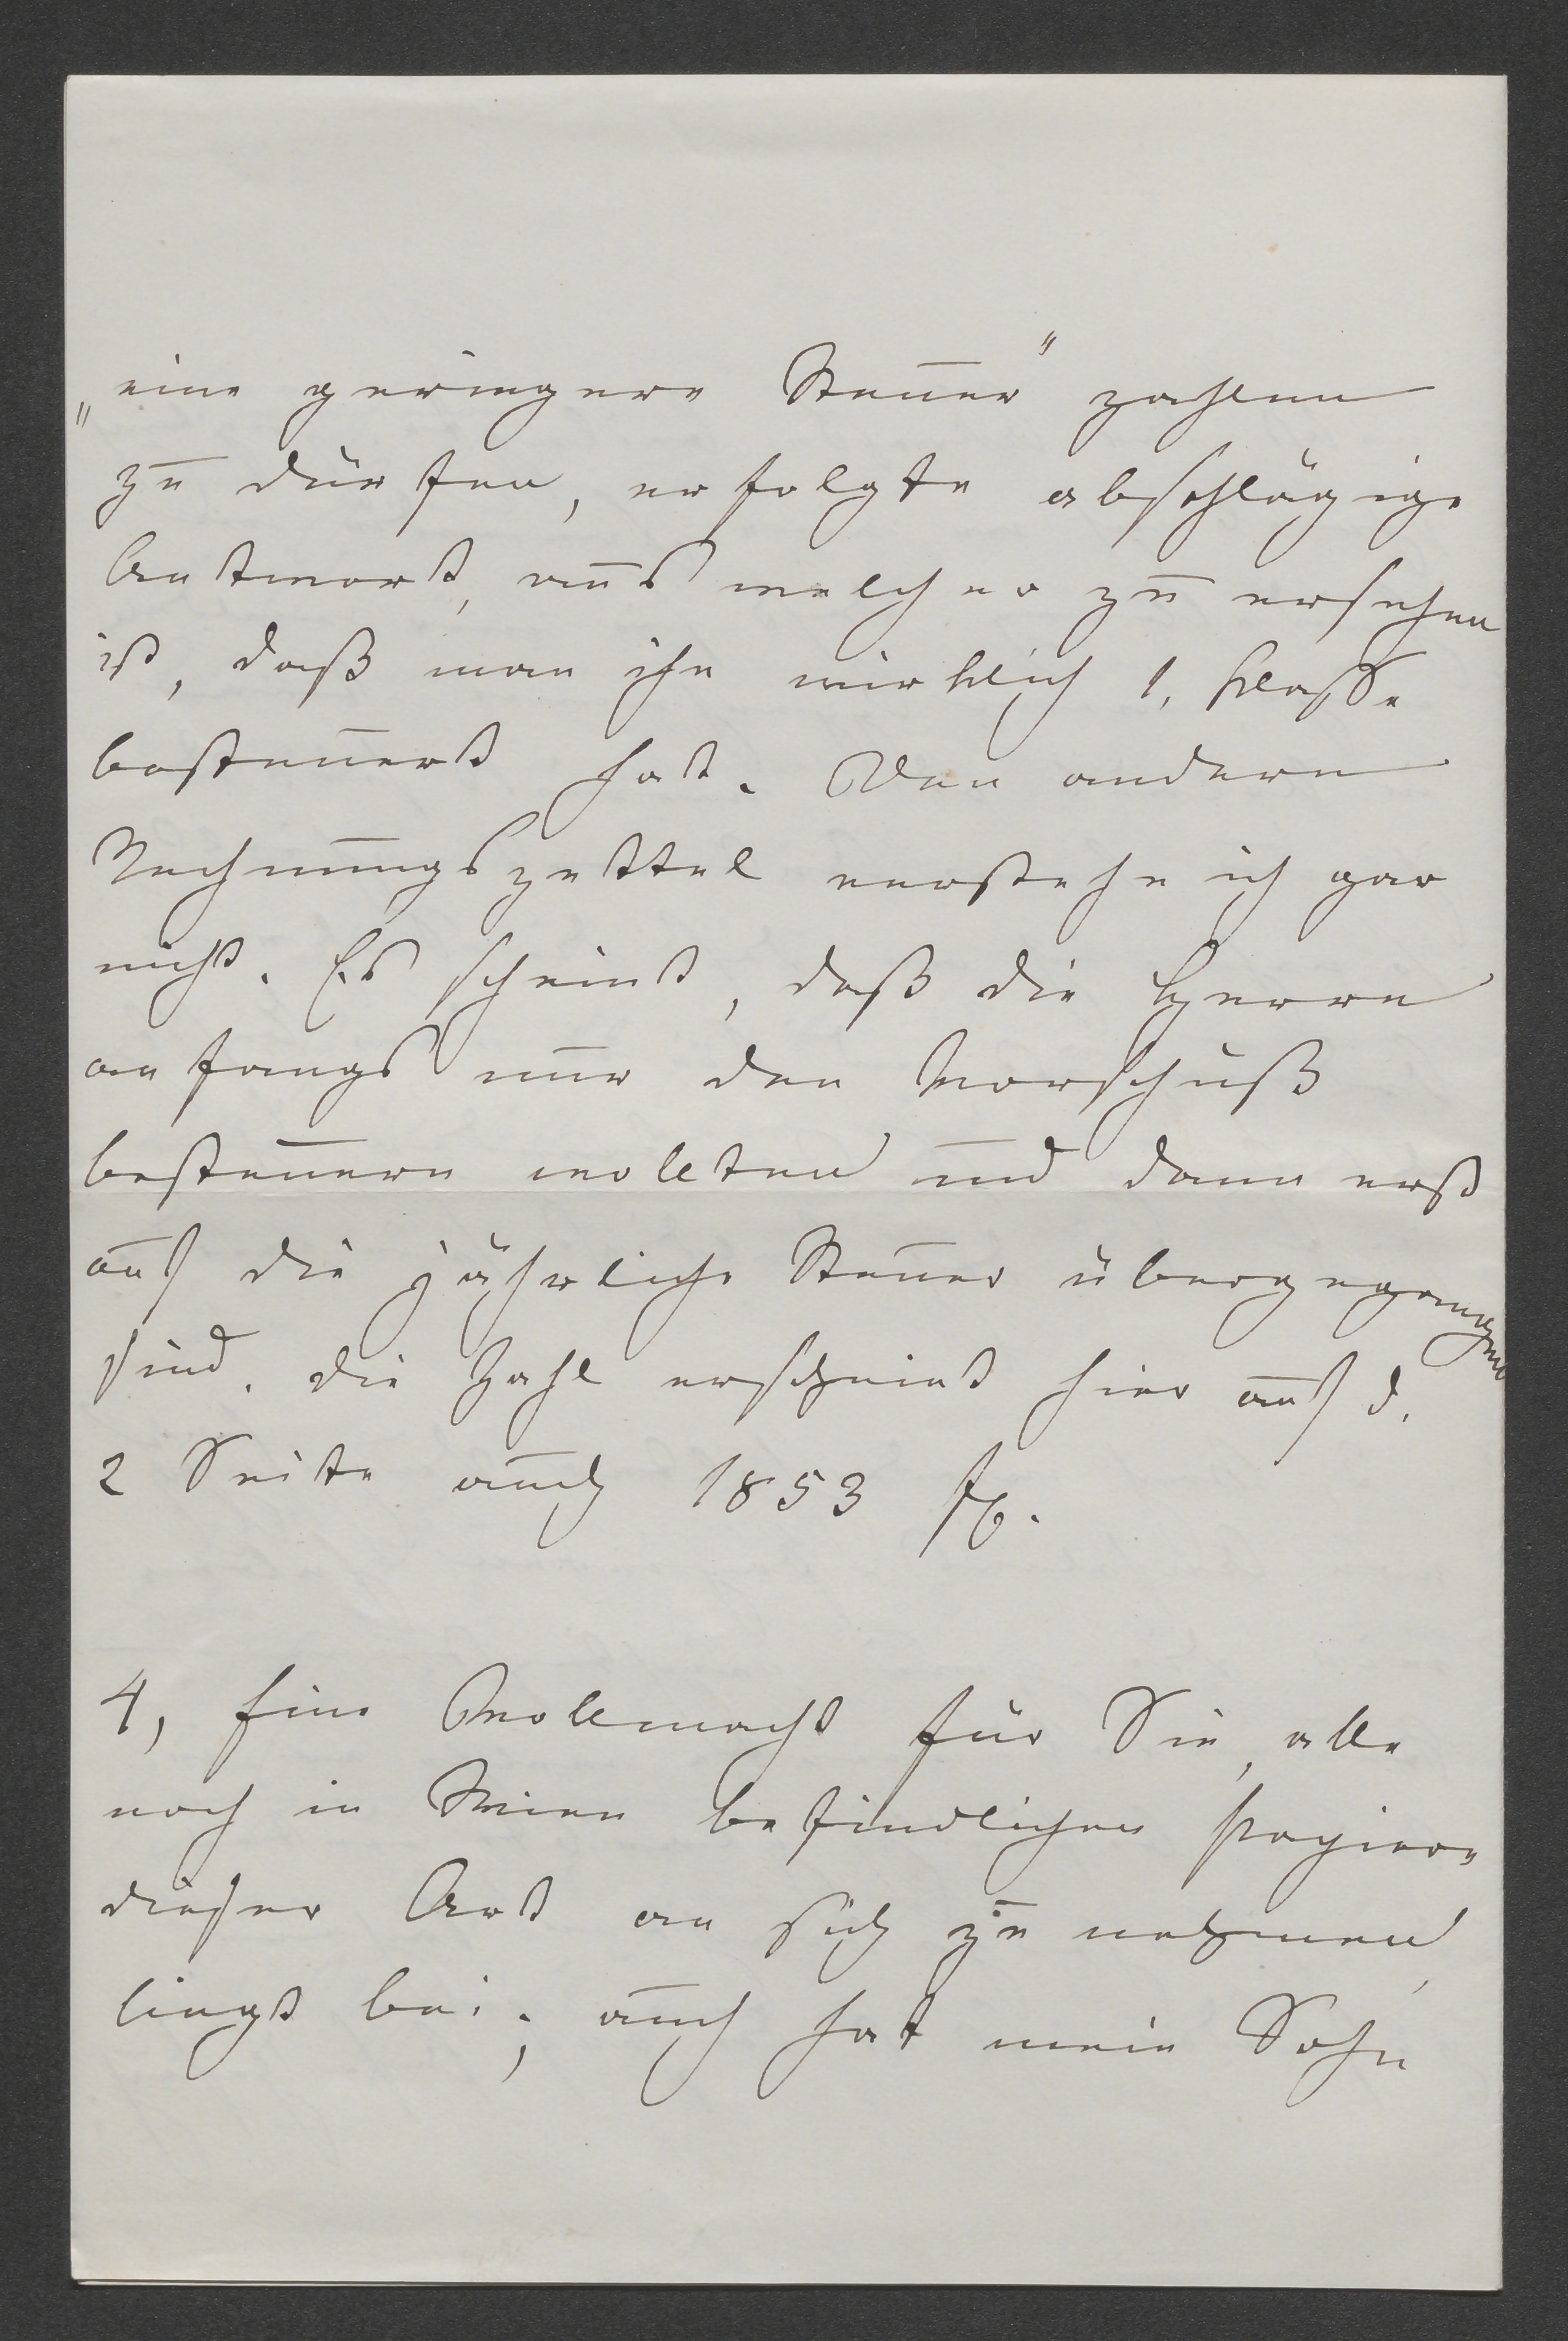 „eine geringere Steuer“ zahlen
zu dürfen, erfolgte abschlägige
Antwort, aus welcher zu ersehen
ist, daß man ihn wirklich 1. Klasse
besteuert hat. Den andern
Rechnungszettel verstehe ich gar
nicht. Es scheint, daß die Herrn
anfangs nur den Vorschuß
besteuern wollten und dann erst
auf die jährliche Steuer übergegangen
sind. Die Zahl erscheint hier auf d.
2 Seite auch 1853 fl.
4, Eine Vollmacht für Sie, alle
noch in Wien befindlichen Papiere
dieser Art an sich zu nehmen,
liegt bei; auch hat mein Sohn